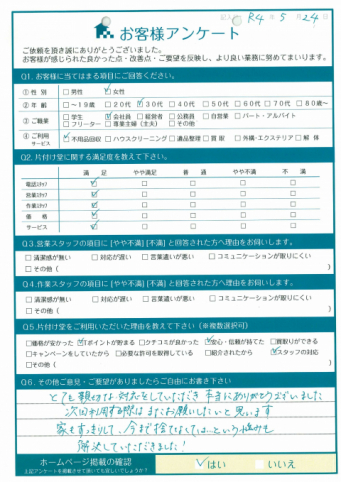 記入日 R4年 5月 24日
お客様アンケート
ご依頼を頂き誠にありがとうございました。
お客様が感じられた良かった点・改善点・ご要望を反映し、より良い業務に努めてまいります。
Q1. お客様に当てはまる項目にご回答ください。
① 性 別 □男性 ☑女性
② 年 齢 □~19歳 □20代 ☑30代 □40代 □50代 □60代 □70代 □80歳~
③ ご職業 □学生 ☑会社員 □経営者 □公務員 □自営業 □パート・アルバイト
□フリーター □専業主婦(主夫) □その他
④ ご利用サービス ☑不用品回収 □ハウスクリーニング □遺品整理 □買取 □外構・エクステリア □解体
Q2. 片付け堂に関する満足度を教えて下さい。
満 足 やや満足 普 通 やや不満 不 満
電話スタッフ ☑ □ □ □ □
営業スタッフ ☑ □ □ □ □
作業スタッフ ☑ □ □ □ □
価 格 ☑ □ □ □ □
サービス ☑ □ □ □ □
Q3. 営業スタッフの項目に [やや不満] [不満] と回答された方へ理由をお伺いします。
□清潔感が無い □対応が遅い □言葉遣いが悪い □コミュニケーションが取りにくい
□その他 ( )
Q4. 作業スタッフの項目に [やや不満] [不満] と回答された方へ理由をお伺いします。
□清潔感が無い □対応が遅い □言葉遣いが悪い □コミュニケーションが取りにくい
□その他 ( )
Q5. 片付け堂をご利用いただいた理由を教えて下さい (※複数選択可)
□価格が安かった ☑Tポイントが貯まる □クチコミが良かった ☑安心・信頼が持てた □買取りができる
□キャンペーンをしていたから □必要な許可を取得している □紹介されたから ☑スタッフの対応
□その他 ( )
Q6. その他ご意見・ご要望がありましたらご自由にお書き下さい
とても親切な対応をしていただき 本当にありがとうございました
次回利用する際は またお願いしたいと思います
家もすっきりして、今まで捨てなくては…という悩みも
解決していただきました!
ホームページ掲載の確認
上記アンケートを掲載させて頂いても宜しいでしょうか?
☑はい □いいえ